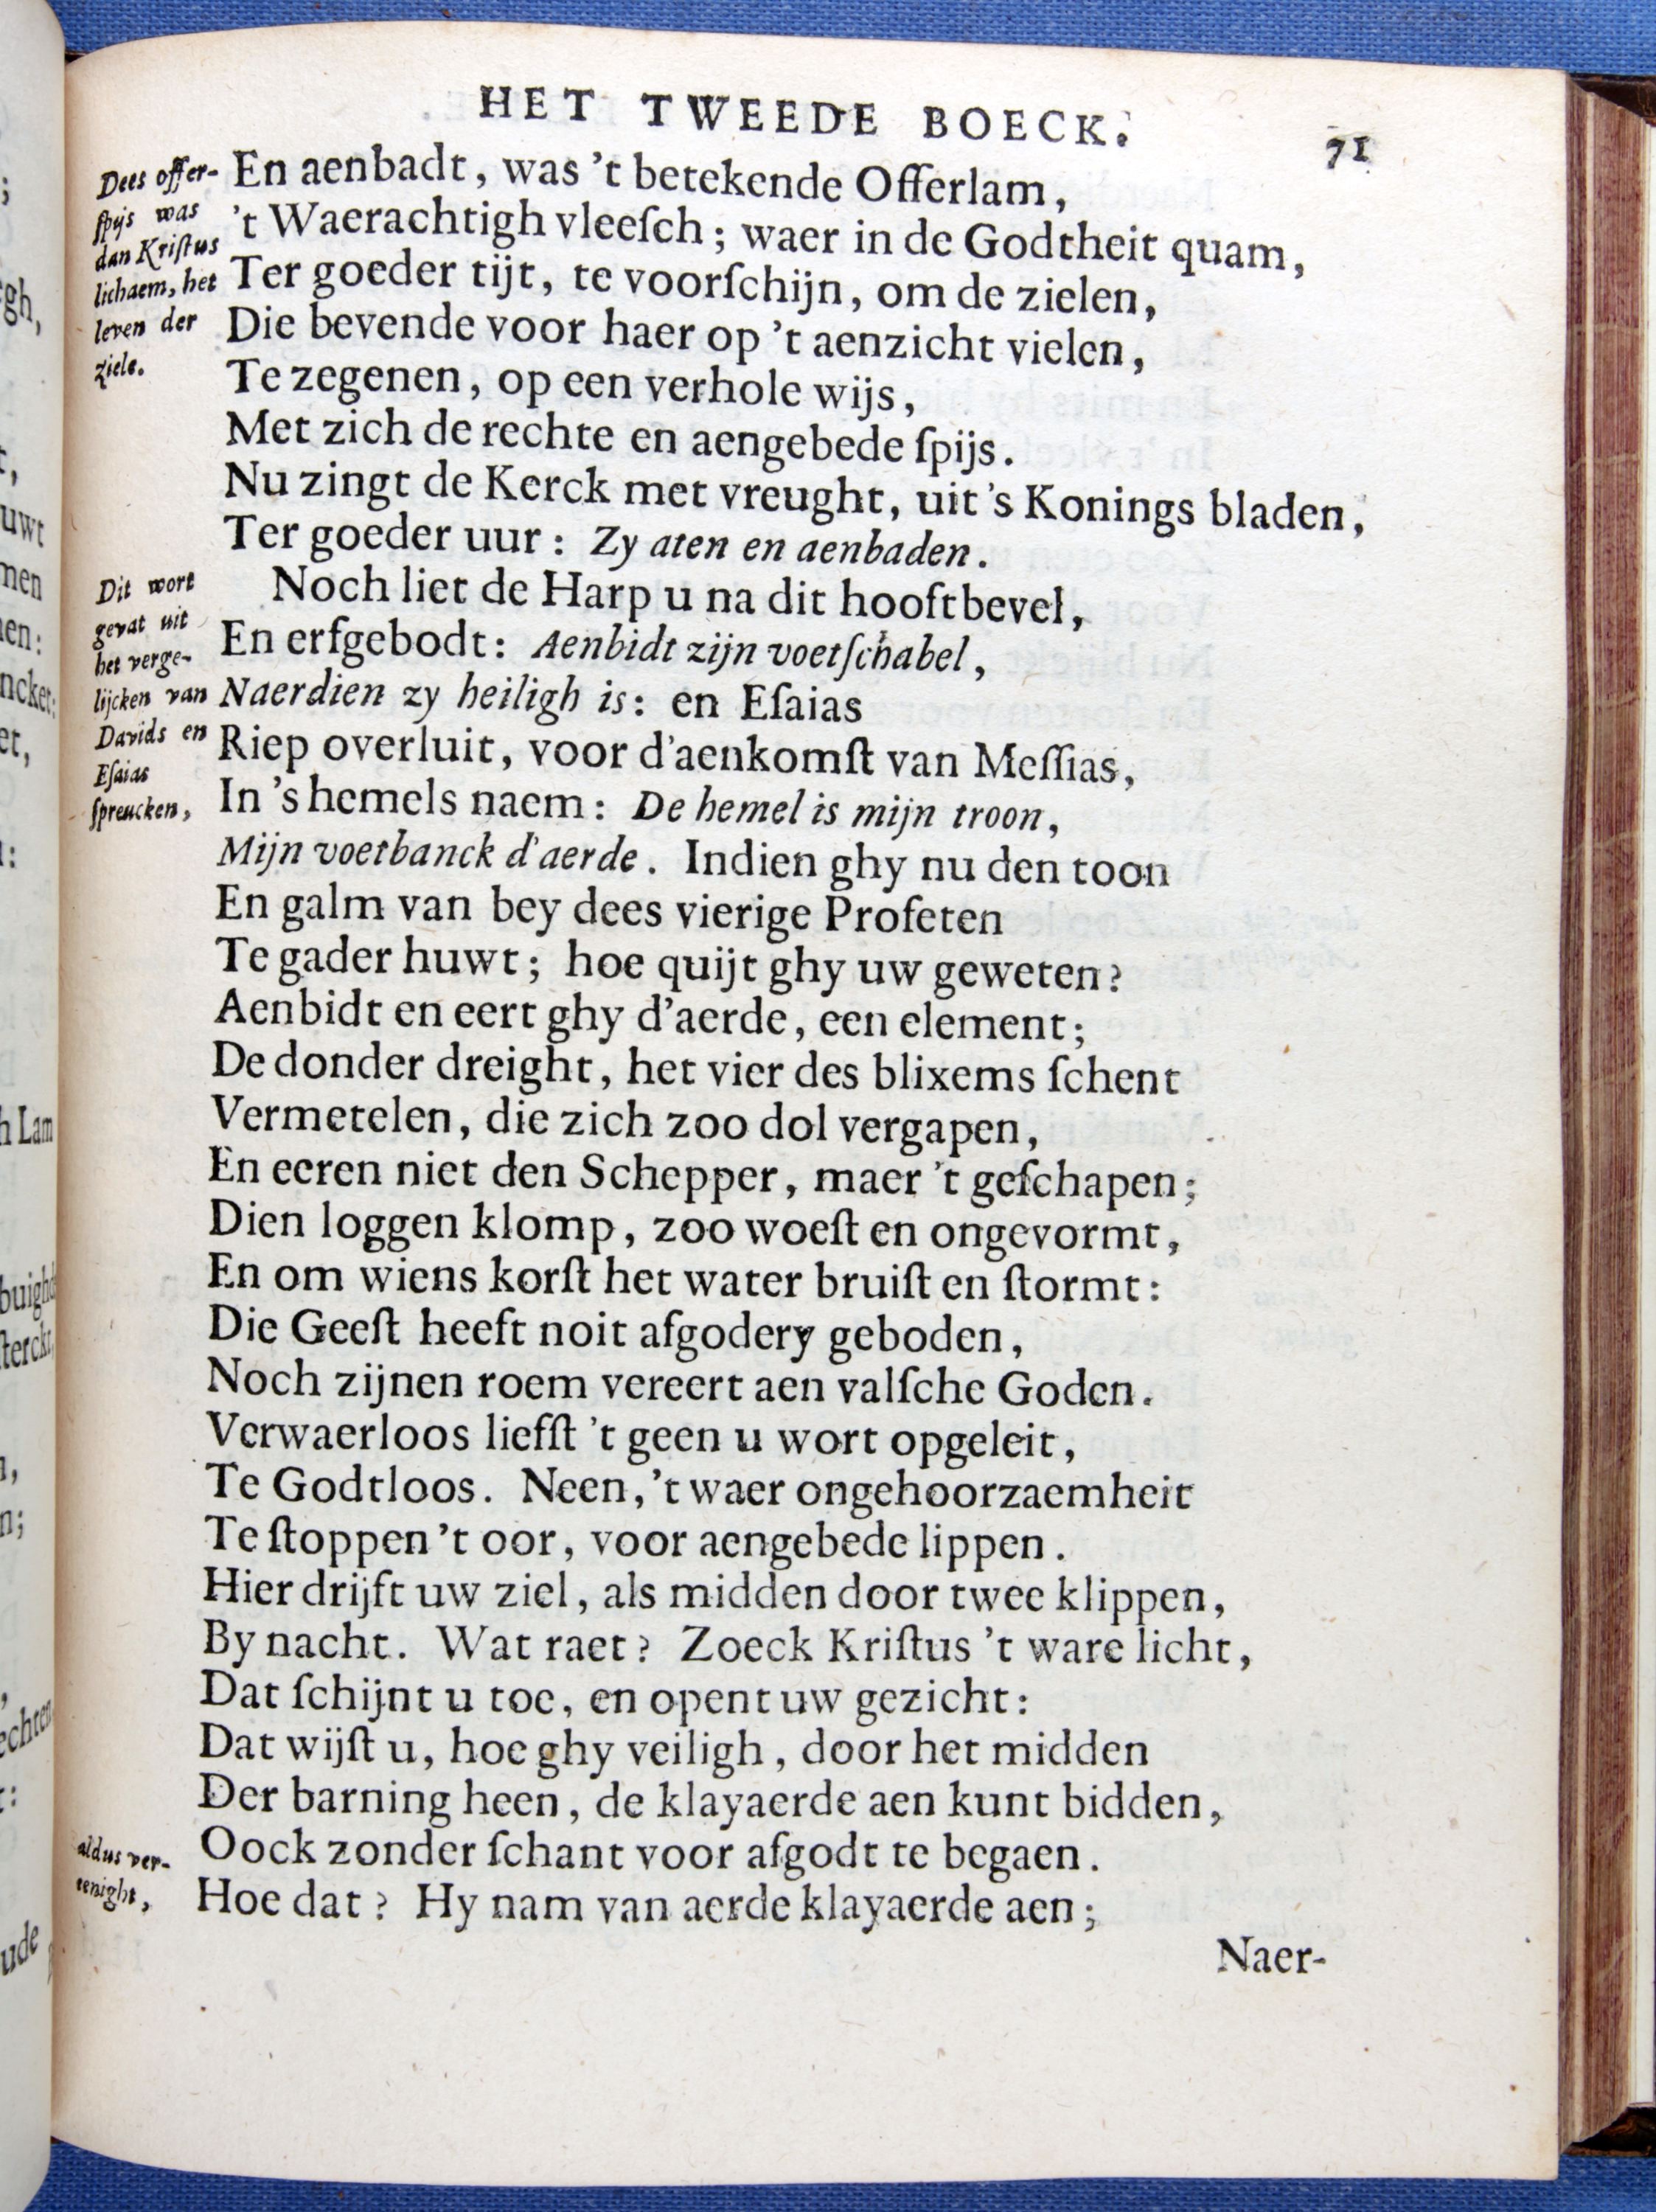 HET TWEEDE BOECK.
71
Dees offer-
ſpijs was
dan Kriſtus
lichaem, het
leven der
ziele.
En aenbadt, was 't betekende Offerlam,
't Waerachtigh vleeſch; waer in de Godtheit quam,
Ter goeder tijt, te voorſchijn, om de zielen,
Die bevende voor haer op 't aenzicht vielen,
Te zegenen, op een verhole wijs,
Met zich de rechte en aengebede ſpijs.
Nu zingt de Kerck met vreught, uit 's Konings bladen,
Ter goeder uur: Zy aten en aenbaden.
Dit wort
gevat uit
het verge-
lijcken van
Davids en
Eſaias
ſpreucken,
Noch liet de Harp u na dit hooftbevel,
En erfgebodt: Aenbidt zijn voetſchabel,
Naerdien zy heiligh is: en Eſaias
Riep overluit, voor d'aenkomſt van Meſſias,
In 's hemels naem: De hemel is mijn troon,
Mijn voetbanck d'aerde. Indien ghy nu den toon
En galm van bey dees vierige Profeten
Te gader huwt; hoe quijt ghy uw geweten?
Aenbidt en eert ghy d'aerde, een element;
De donder dreight, het vier des blixems ſchent
Vermetelen, die zich zoo dol vergapen,
En eeren niet den Schepper, maer 't geſchapen;
Dien loggen klomp, zoo woeſt en ongevormt,
En om wiens korſt het water bruiſt en ſtormt:
Die Geeſt heeft noit afgodery geboden,
Noch zijnen roem vereert aen valſche Goden.
Verwaerloos liefſt 't geen u wort opgeleit,
Te Godtloos. Neen, 't waer ongehoorzaemheit
Te ſtoppen 't oor, voor aengebede lippen.
Hier drijft uw ziel, als midden door twee klippen,
By nacht. Wat raet? Zoeck Kriſtus 't ware licht,
Dat ſchijnt u toe, en opent uw gezicht:
Dat wijſt u, hoe ghy veiligh, door het midden
Der barning heen, de klayaerde aen kunt bidden,
Oock zonder ſchant voor afgodt te begaen.
aldus ver-
eenight,
Hoe dat? Hy nam van aerde klayaerde aen;
Naer-